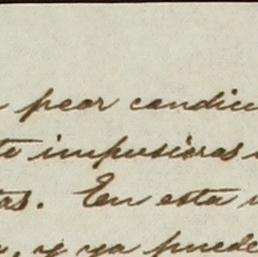 peor condici
te impusieras
tas. En esta
, y ya puede